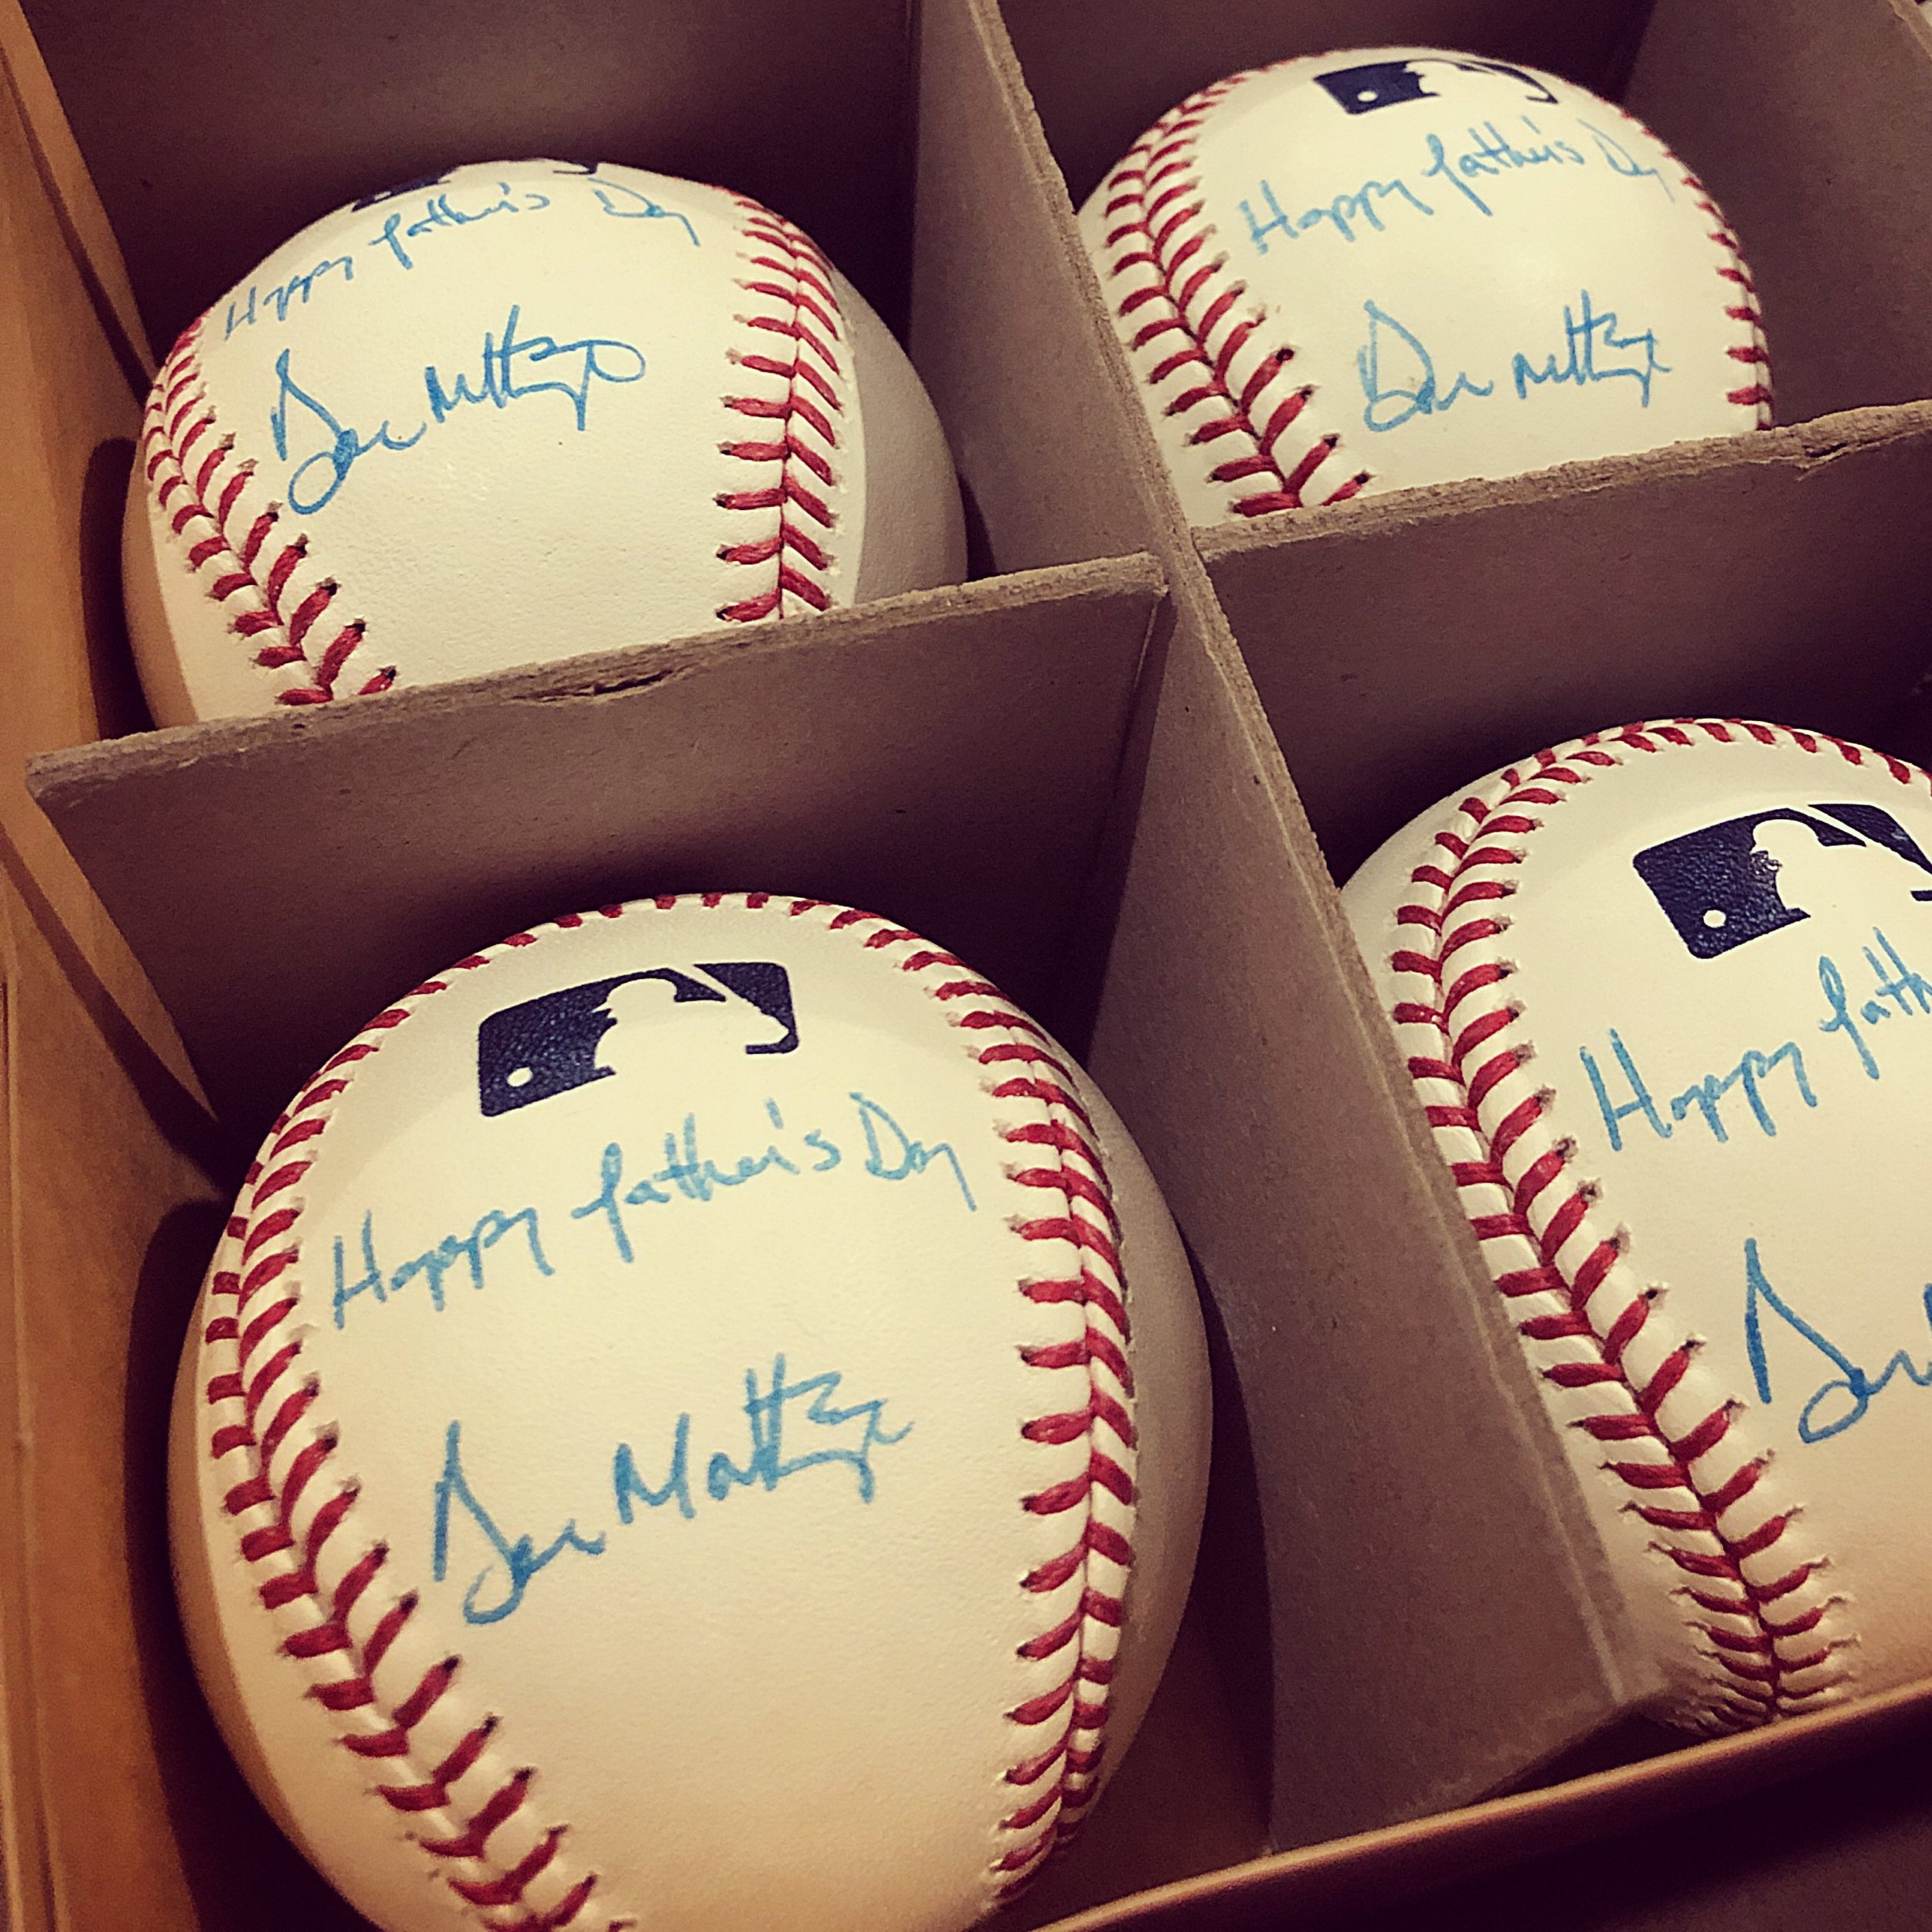 Happy Father's Day
Don Mattingly
Happy Father's Day
Don Mattingly
Happy Father's Day
Don Mattingly
Happy Fath
Don